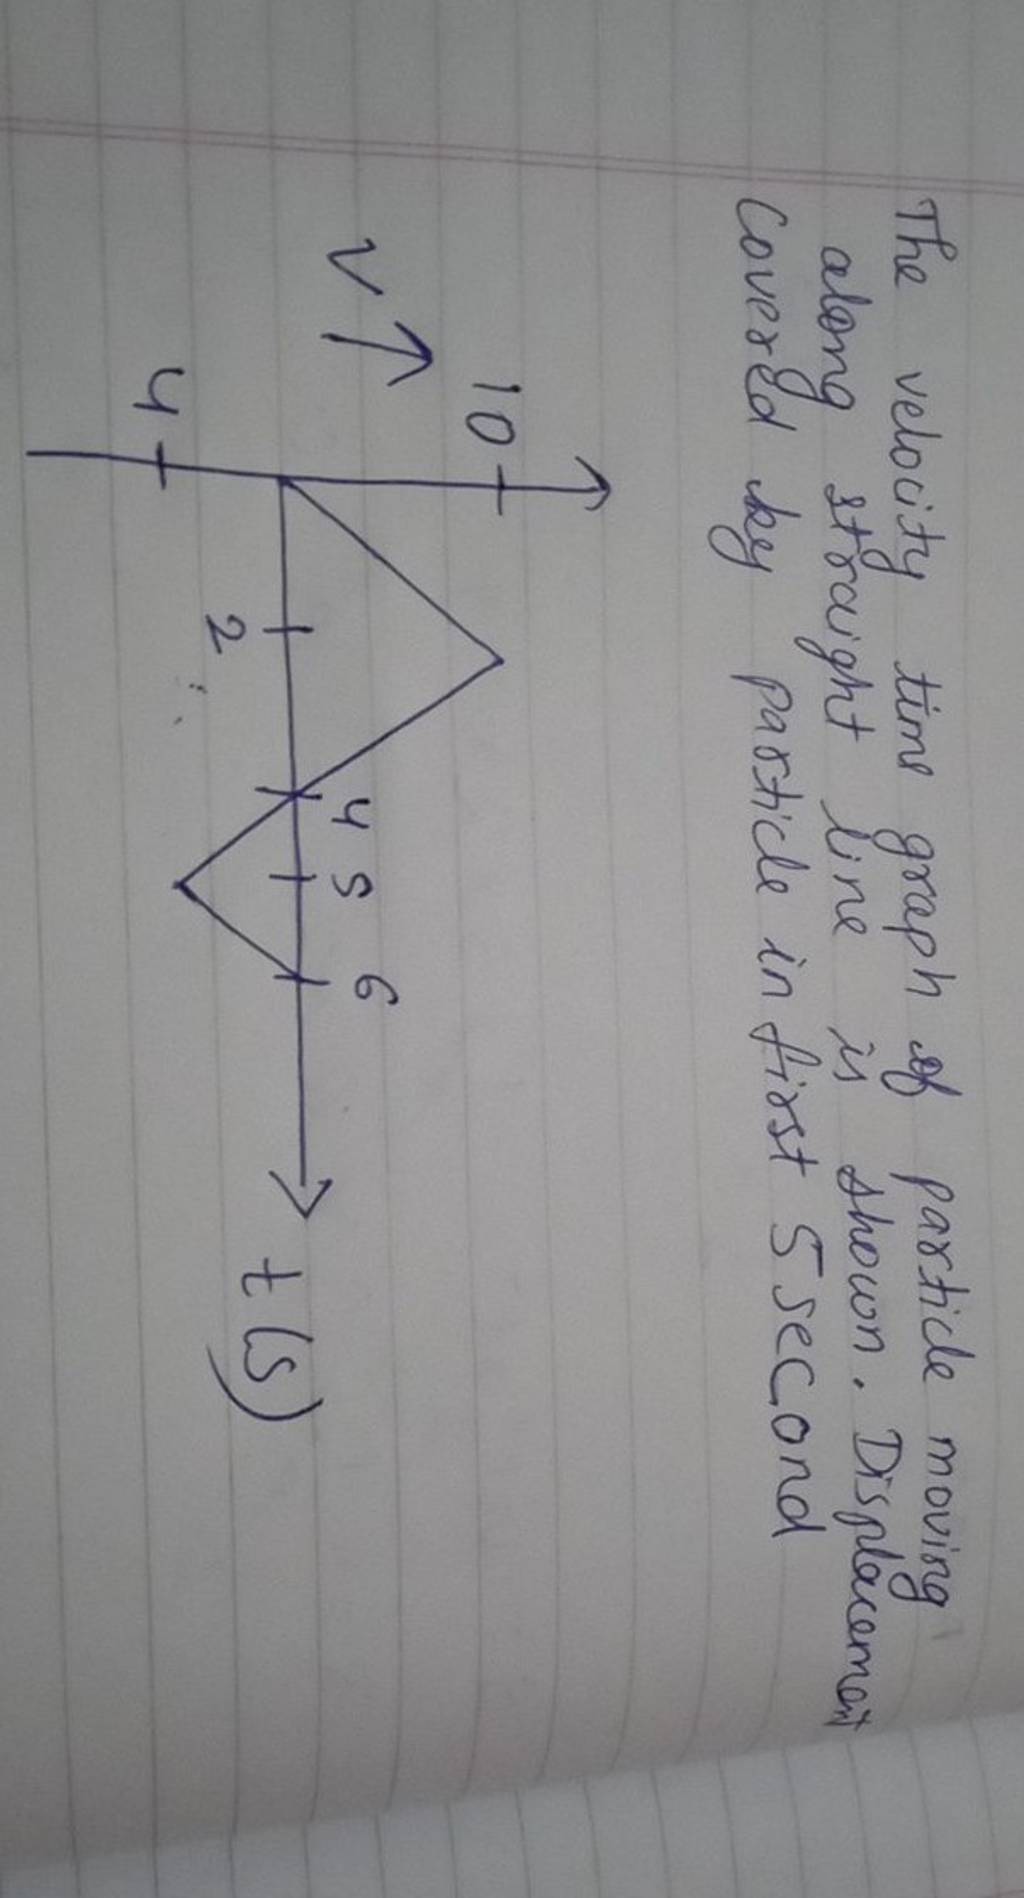 The velocity time graph of particle moving
along straight line is shown. Displacement
Covered by particle in first 5 second
V
10
4
2
4
5
6
t (s)